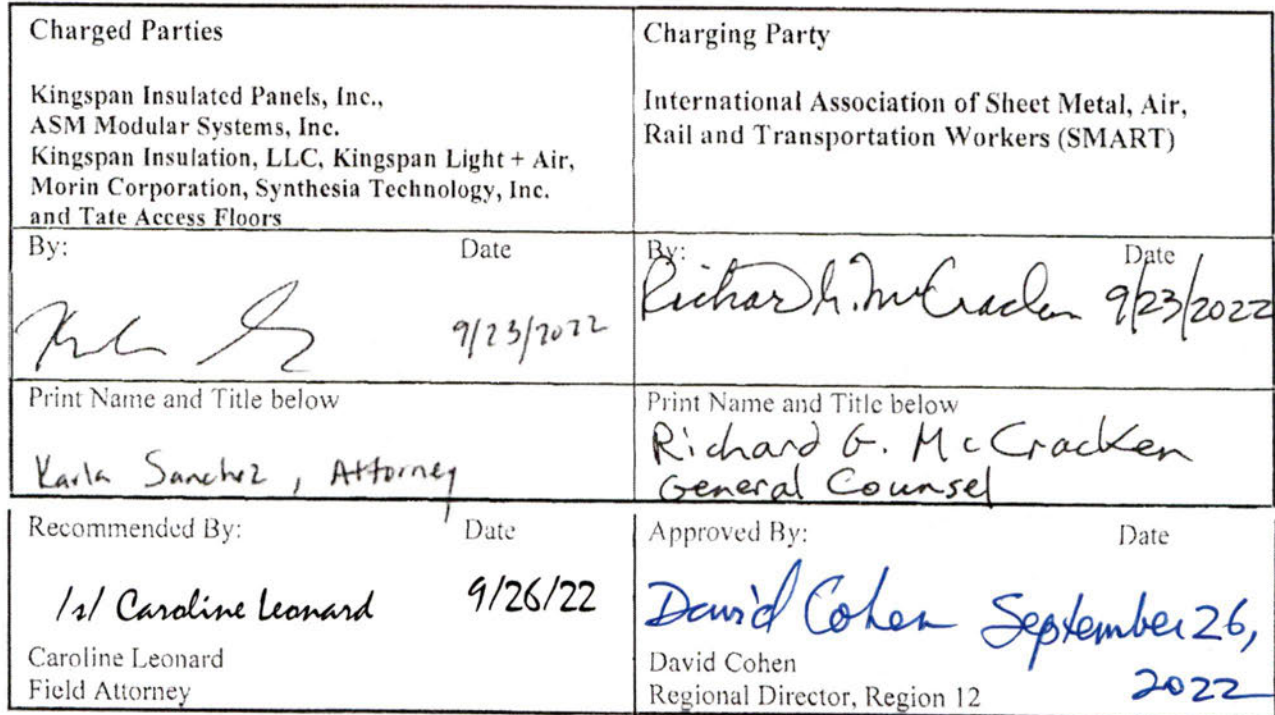 Charged Parties
Kingspan Insulated Panels, Inc.,
ASM Modular Systems, Inc.
Kingspan Insulation, LLC, Kingspan Light + Air,
Morin Corporation, Synthesia Technology, Inc.
and Tate Access Floors
Charging Party
International Association of Sheet Metal, Air,
Rail and Transportation Workers (SMART)
By: Date
9/23/2022
By: Date
Richard G. McCracken 9/23/2022
Print Name and Title below
Karla Sanchez, Attorney
Print Name and Title below
Richard G. McCracken
General Counsel
Recommended By: Date
/s/ Caroline Leonard 9/26/22
Caroline Leonard
Field Attorney
Approved By: Date
David Cohen September 26,
2022
David Cohen
Regional Director, Region 12